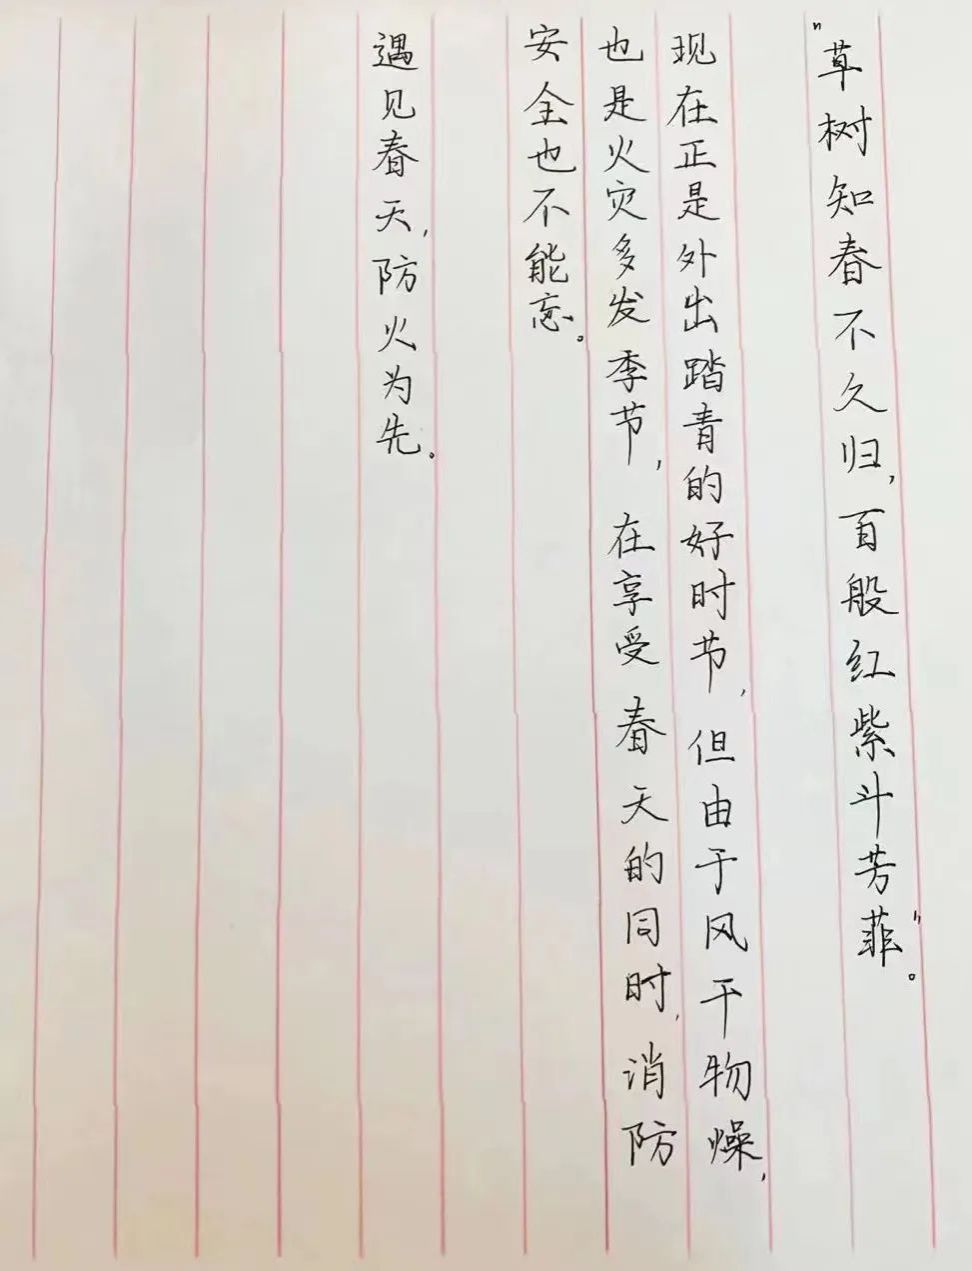 “草树知春不久归，百般红紫斗芳菲”。
现在正是外出踏青的好时节，但由于风干物燥，
也是火灾多发季节，在享受春天的同时，消防
安全也不能忘。
遇见春天，防火为先。